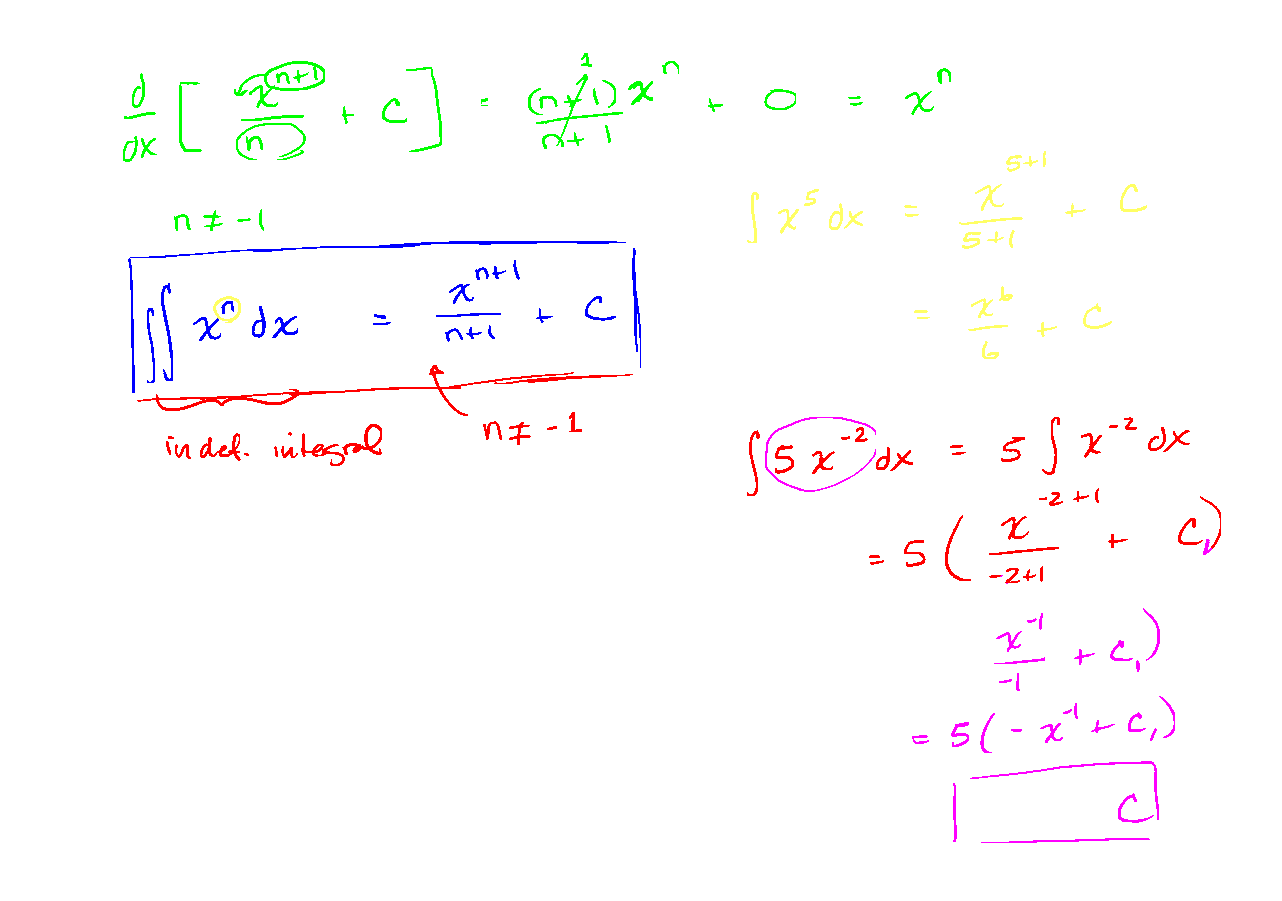 d/dx [ x^(n+1)/n + C ] = (n+1)x^n/n+1 + 0 = x^n
1
n ≠ -1
∫∫ x^n dx = x^(n+1)/n+1 + C
indef. integral
n ≠ -1
∫ x^5 dx = x^(5+1)/5+1 + C
= x^6/6 + C
∫ 5 x^-2 dx = 5 ∫ x^-2 dx
= 5 ( x^(-2+1)/-2+1 + C₁)
x^-1/-1 + C₁)
= 5(- x^-1 + C₁)
C